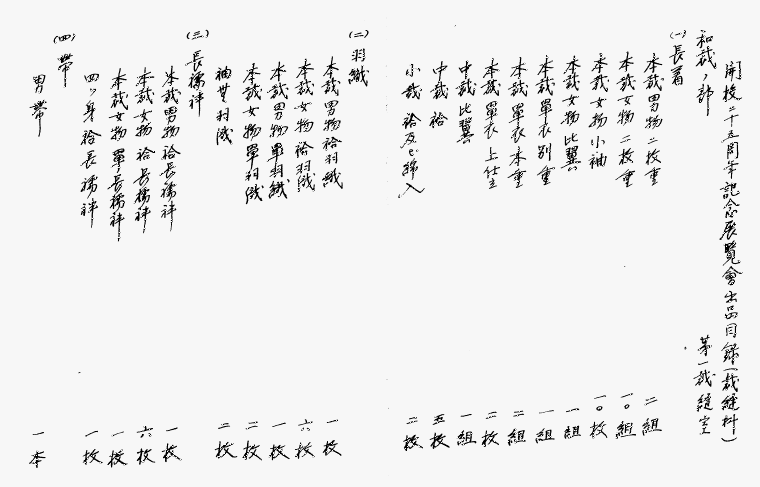 開校二十五周年記念展覧會出品目録（裁縫科）
和裁ノ部 第一裁縫室
(一)長着
本裁男物二枚重 二組
本裁女物二枚重 一〇組
本裁女物小袖 一〇枚
本裁女物比翼 一組
本裁單衣別重 一組
本裁單衣本重 二組
本裁單衣上仕立 二枚
中裁比翼 一組
中裁袷 五枚
小裁袷及ビ綿入 二枚
(二)羽織
本裁男物袷羽織 一枚
本裁女物袷羽織 六枚
本裁男物單羽織 一枚
本裁女物單羽織 二枚
袖無羽織 二枚
(三)長襦袢
本裁男物袷長襦袢 一枚
本裁女物袷長襦袢 六枚
本裁女物單長襦袢 一枚
四ツ身袷長襦袢 一枚
(四)帯
男帯 一本